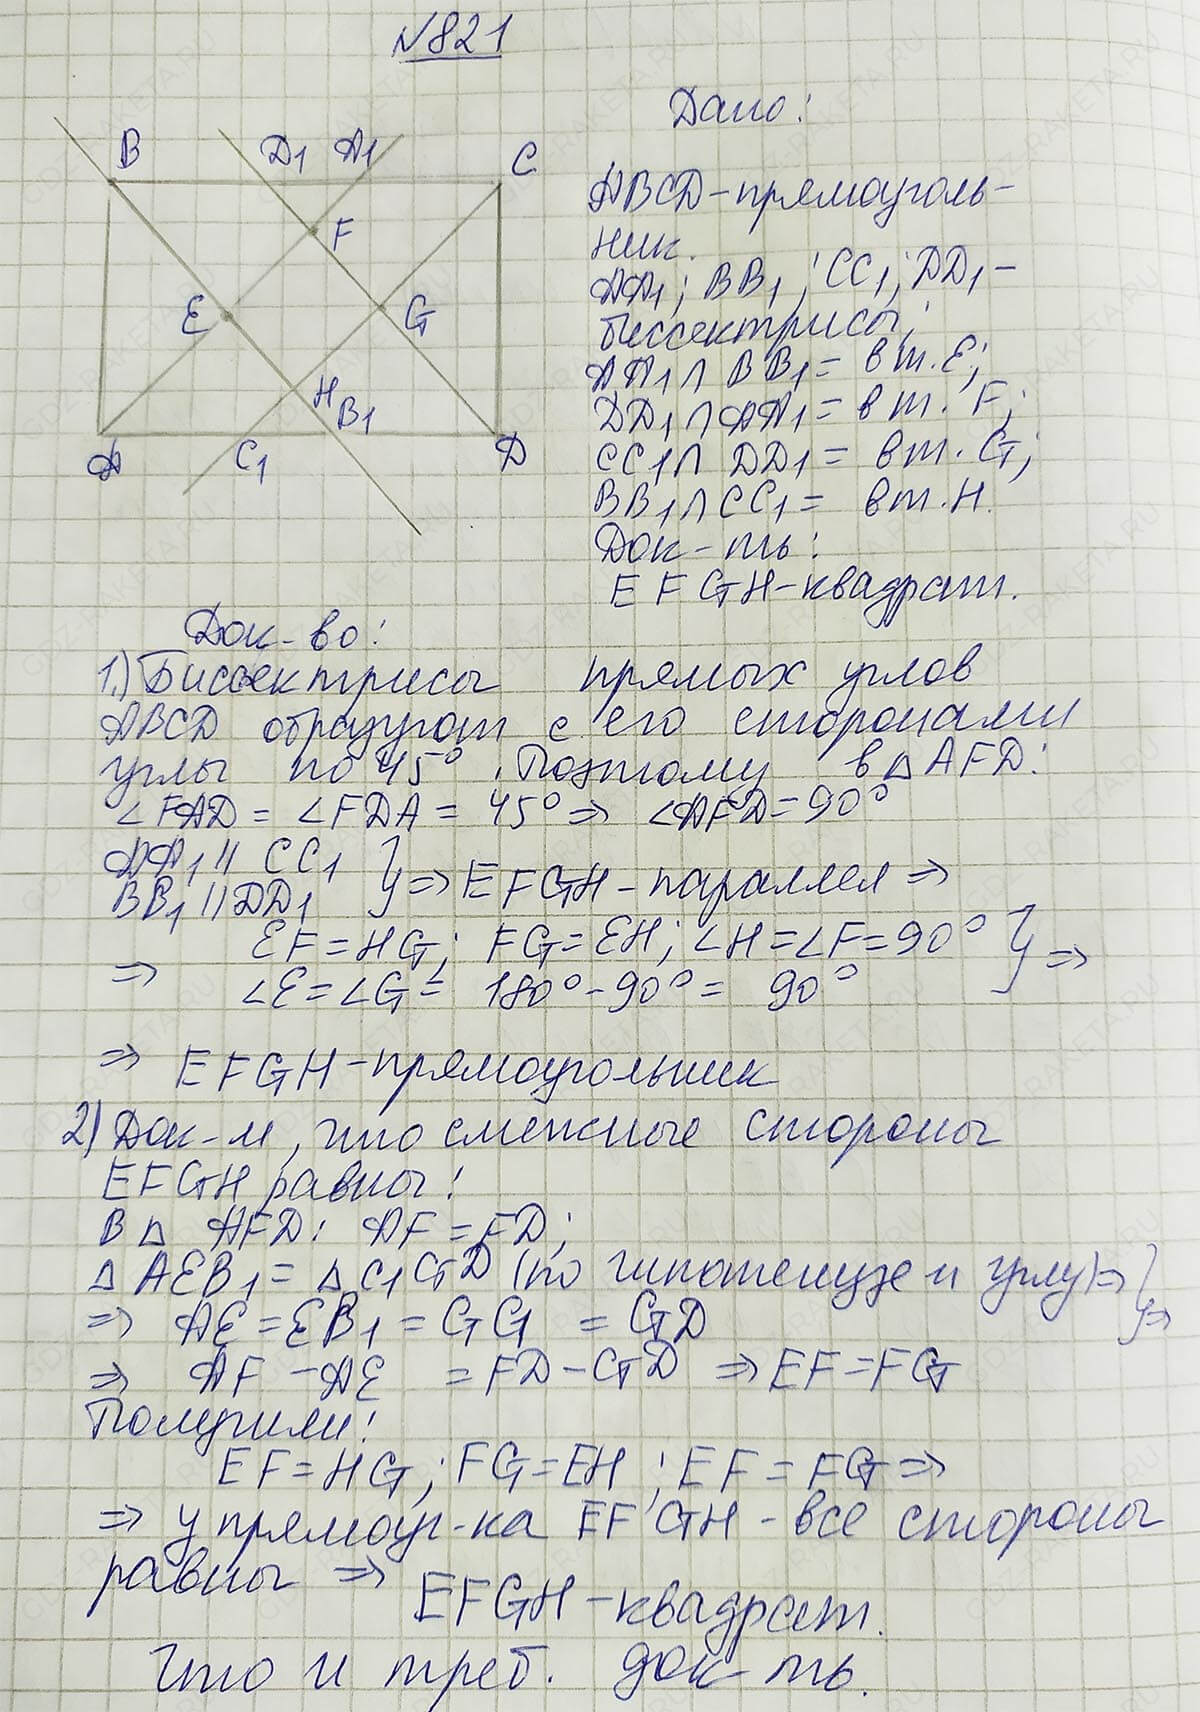 №821
B D1 A1 C
F
E G
H B1
A C1 D
Дано:
ABCD-прямоуголь-
ник.
AA1; BB1; CC1; DD1-
биссектрисы;
AA1 ∩ BB1 = в т. E;
DD1 ∩ AA1 = в т. F;
CC1 ∩ DD1 = в т. G;
BB1 ∩ CC1 = в т. H.
Док-ть:
EFGH-квадрат.
Док-во:
1.) Биссектрисы прямых углов
ABCD образуют с его сторонами
углы по 45°. Поэтому в △AFD:
∠FAD = ∠FDA = 45° ⇒ ∠AFD = 90°
AA1 || CC1
BB1 || DD1 } ⇒ EFGH-параллел ⇒
EF = HG; FG = EH; ∠H = ∠F = 90°
⇒ ∠E = ∠G = 180° - 90° = 90° } ⇒
⇒ EFGH-прямоугольник
2) Док-м, что смежные стороны
EFGH равны:
В △ AFD: AF = FD;
△ AEB1 = △ C1GD (по гипотенузе и углу) ⇒ } ⇒
⇒ AE = EB1 = GG1 = GD
⇒ AF - AE = FD - GD ⇒ EF = FG
Получили:
EF = HG; FG = EH; EF = FG ⇒
⇒ у прямоуг-ка EFGH - все стороны
равны ⇒ EFGH-квадрат.
Что и треб. док-ть.